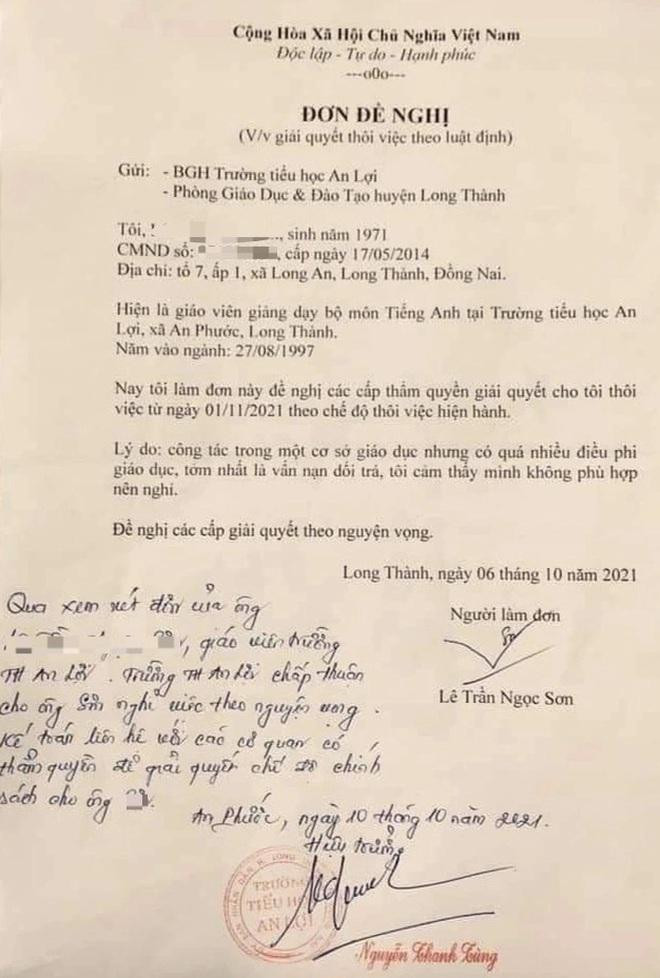 Cộng Hòa Xã Hội Chủ Nghĩa Việt Nam
Độc lập - Tự do - Hạnh phúc
---o0o---
ĐƠN ĐỀ NGHỊ
(V/v giải quyết thôi việc theo luật định)
Gửi: - BGH Trường tiểu học An Lợi
- Phòng Giáo Dục & Đào Tạo huyện Long Thành
Tôi, , sinh năm 1971
CMND số: , cấp ngày 17/05/2014
Địa chỉ: tổ 7, ấp 1, xã Long An, Long Thành, Đồng Nai.
Hiện là giáo viên giảng dạy bộ môn Tiếng Anh tại Trường tiểu học An
Lợi, xã An Phước, Long Thành.
Năm vào ngành: 27/08/1997
Nay tôi làm đơn này đề nghị các cấp thẩm quyền giải quyết cho tôi thôi
việc từ ngày 01/11/2021 theo chế độ thôi việc hiện hành.
Lý do: công tác trong một cơ sở giáo dục nhưng có quá nhiều điều phi
giáo dục, tởm nhất là vấn nạn dối trá, tôi cảm thấy mình không phù hợp
nên nghỉ.
Đề nghị các cấp giải quyết theo nguyện vọng.
Long Thành, ngày 06 tháng 10 năm 2021
Người làm đơn
Lê Trần Ngọc Sơn
Qua xem xét đơn của ông
, giáo viên trường
TH An Lợi. Trường TH An Lợi chấp thuận
cho ông Sơn nghỉ việc theo nguyện vọng.
Kế toán liên hệ với các cơ quan có
thẩm quyền để giải quyết chế độ chính
sách cho ông
An Phước, ngày 10 tháng 10 năm 2021.
Hiệu trưởng
TRƯỜNG
TIỂU HỌC
AN LỢI
Nguyễn Thanh Tùng